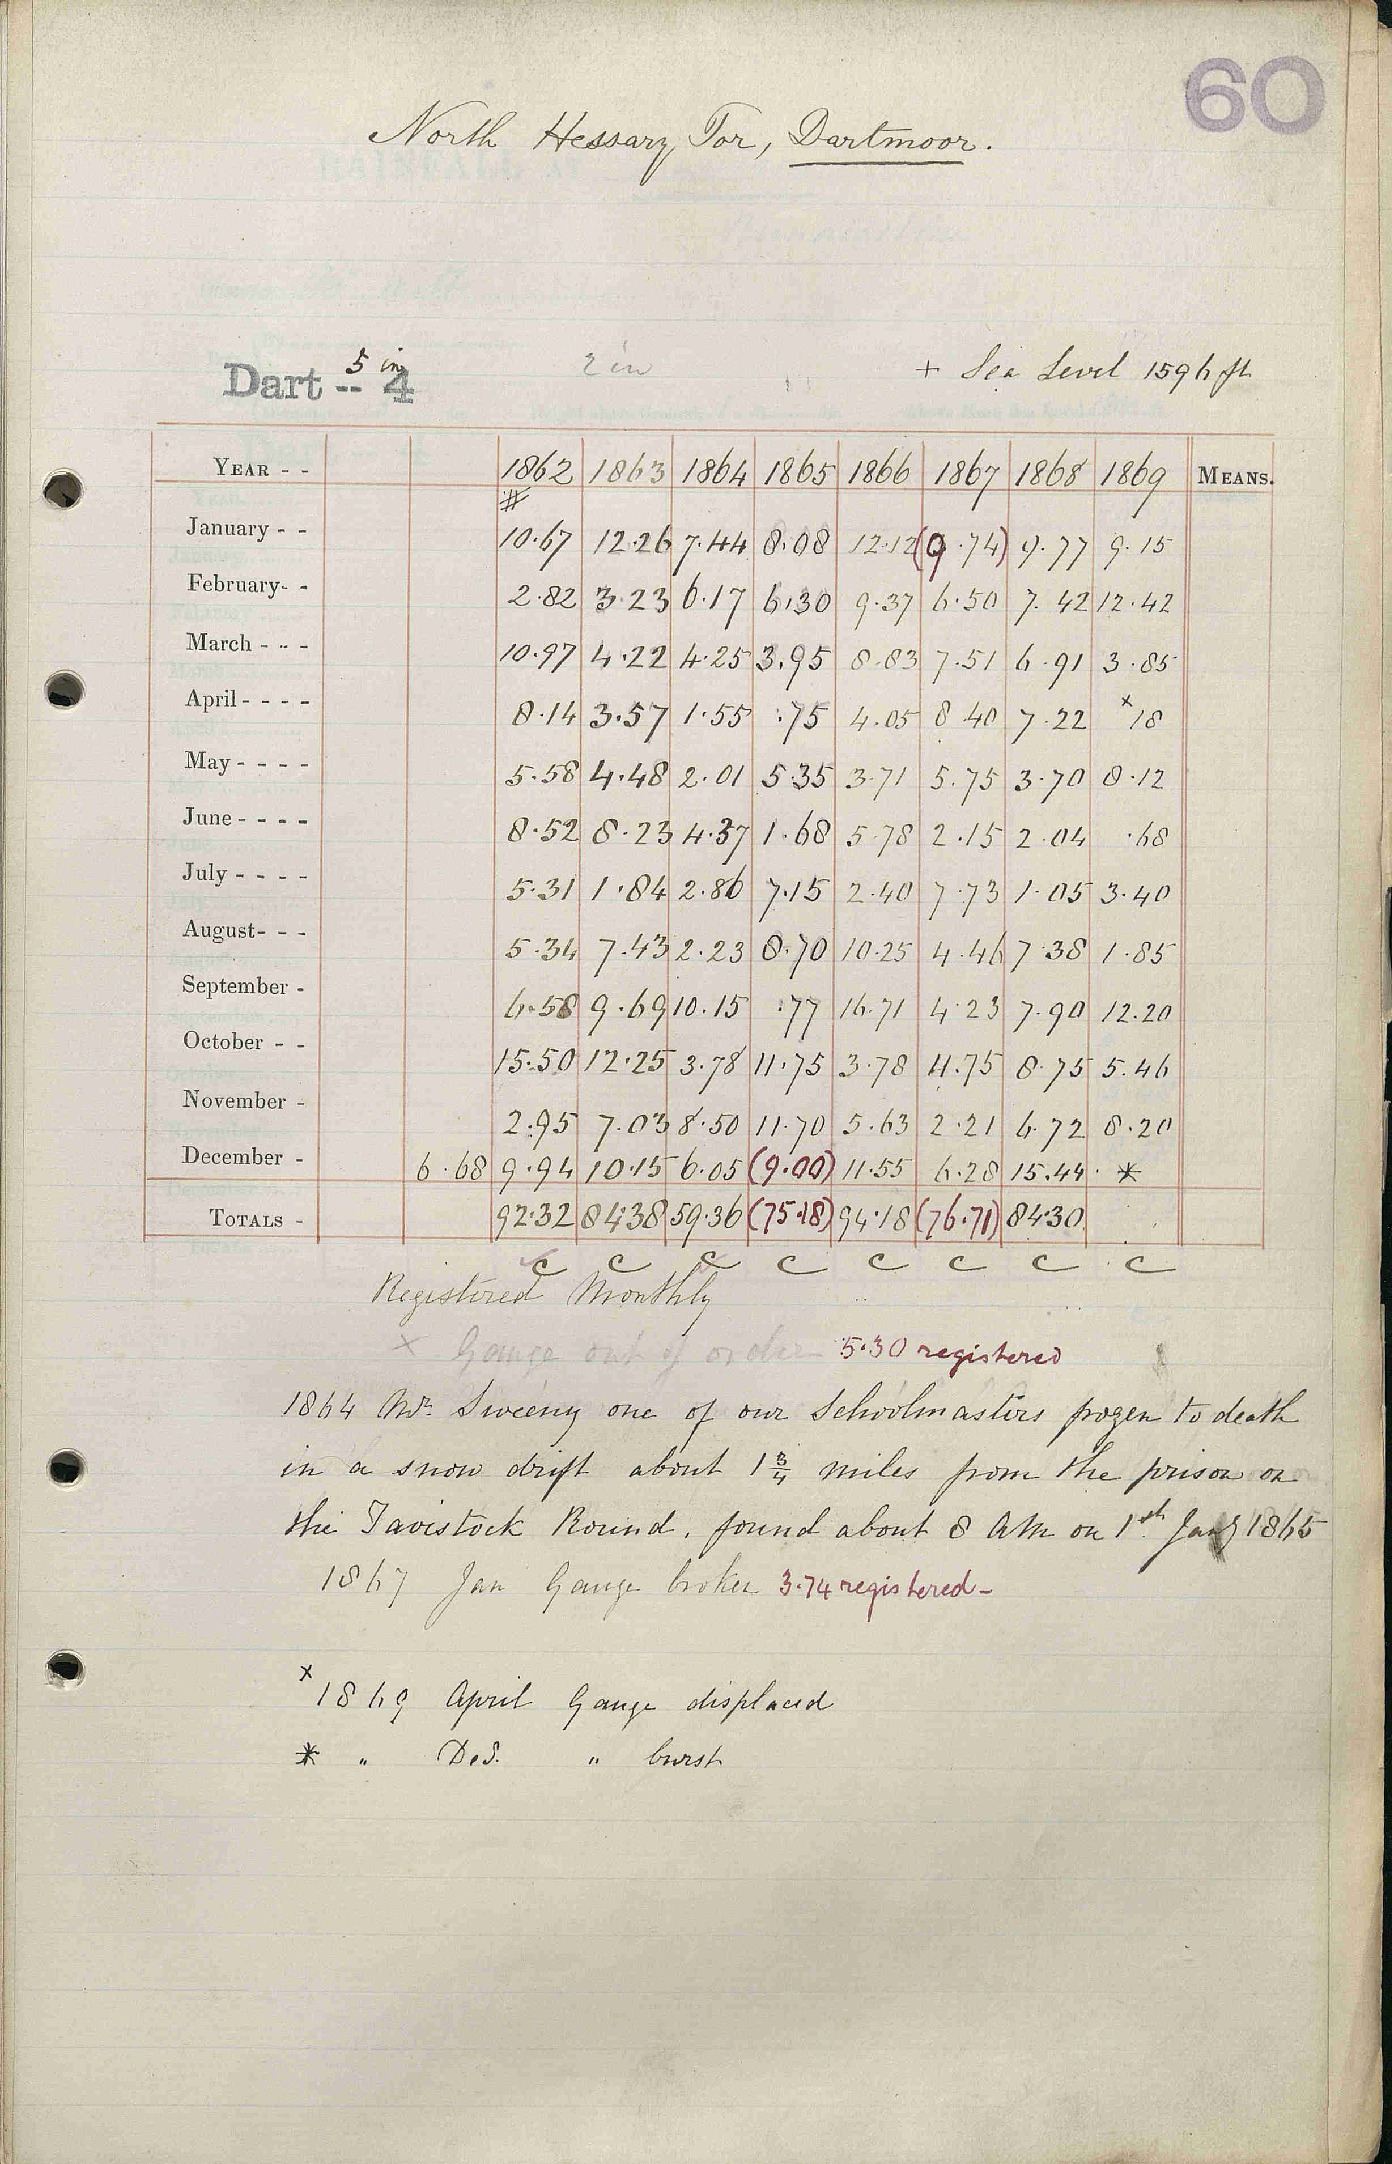 60
North Hessary Tor, Dartmoor.
5 in
Dart -- 4 2 in + Sea Level 1596 ft
YEAR - - 1862 1863 1864 1865 1866 1867 1868 1869 MEANS.
#
January - - 10.67 12.26 7.44 8.08 12.12 (9.74) 9.77 9.15
February- - 2.82 3.23 6.17 6.30 9.37 6.50 7.42 12.42
March - - - 10.97 4.22 4.25 3.95 8.83 7.51 6.91 3.85
April - - - - 8.14 3.57 1.55 .75 4.05 8.40 7.22 x18
May - - - - 5.58 4.48 2.01 5.35 3.71 5.75 3.70 8.12
June - - - - 8.52 8.23 4.37 1.68 5.78 2.15 2.04 .68
July - - - - 5.31 1.84 2.86 7.15 2.40 7.73 1.05 3.40
August- - - 5.34 7.43 2.23 8.70 10.25 4.46 7.38 1.85
September - 6.58 9.69 10.15 .77 16.71 4.23 7.90 12.20
October - - 15.50 12.25 3.78 11.75 3.78 11.75 8.75 5.46
November - 2.95 7.03 8.50 11.70 5.63 2.21 6.72 8.20
December - 6.68 9.94 10.15 6.05 (9.00) 11.55 6.28 15.44 *
TOTALS - 92.32 84.38 59.36 (75.18) 94.18 (76.71) 84.30
C C C C C C C C
Registered Monthly
x Gauge out of order 5.30 registered
1864 Mr. Sweeny one of our Schoolmasters frozen to death
in a snow drift about 1 3/4 miles from the prison on
the Tavistock Round. found about 8 AM on 1st Jany 1865
1867 Jan Gauge broken 3.74 registered -
x 1869 April Gauge displaced
* " Dec. " burst